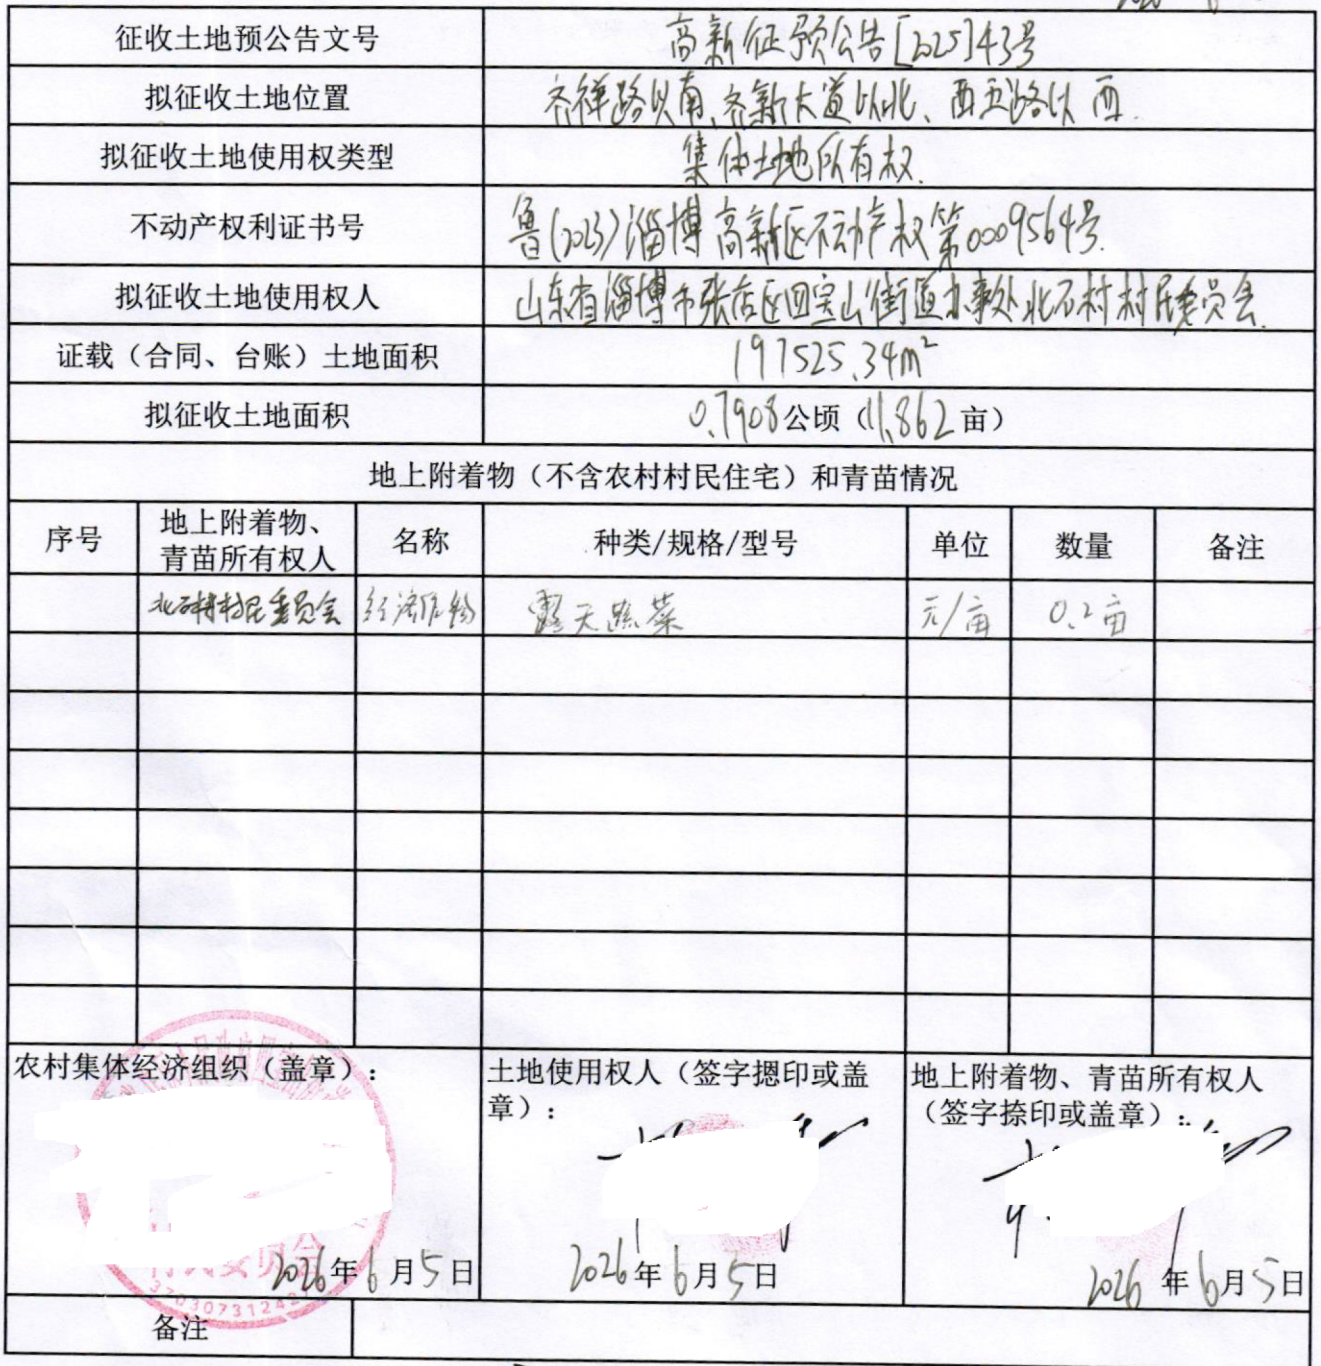 征收土地预公告文号 高新征预公告[2025]43号
拟征收土地位置 齐祥路以南、齐新大道以北、西五路以西.
拟征收土地使用权类型 集体土地所有权.
不动产权利证书号 鲁(2023)淄博高新区不动产权第0009564号.
拟征收土地使用权人 山东省淄博市张店区四宝山街道办事处北石村村民委员会.
证载（合同、台账）土地面积 197525.34m²
拟征收土地面积 0.7908公顷（11.862亩）
地上附着物（不含农村村民住宅）和青苗情况
序号 地上附着物、 名称 种类/规格/型号 单位 数量 备注
青苗所有权人
北石村村民委员会 经济作物 露天蔬菜 元/亩 0.2亩
农村集体经济组织（盖章）： 土地使用权人（签字摁印或盖 地上附着物、青苗所有权人
章）： （签字捺印或盖章）：
村民委员会
2026年6月5日 2026年6月5日 2026年6月5日
备注